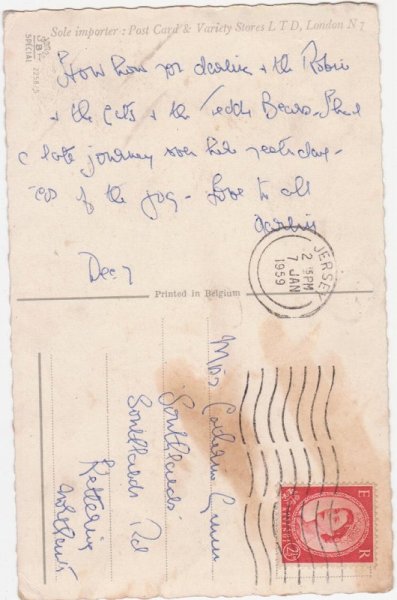 Sole importer : Post Card & Variety Stores L T D, London N 7
SPECIAL
2258-5
How how you darling & the Robin
& the Cats & the Teddy Bears - I had
a late journey over here yesterday -
of the fog - Love to all
darling
Dec 7
JERSEY
2 15PM
7 JAN
1959
Printed in Belgium
Miss Catherine
Southlands
Southlands Rd
Kettering
E R
POSTAGE
REVENUE
2½